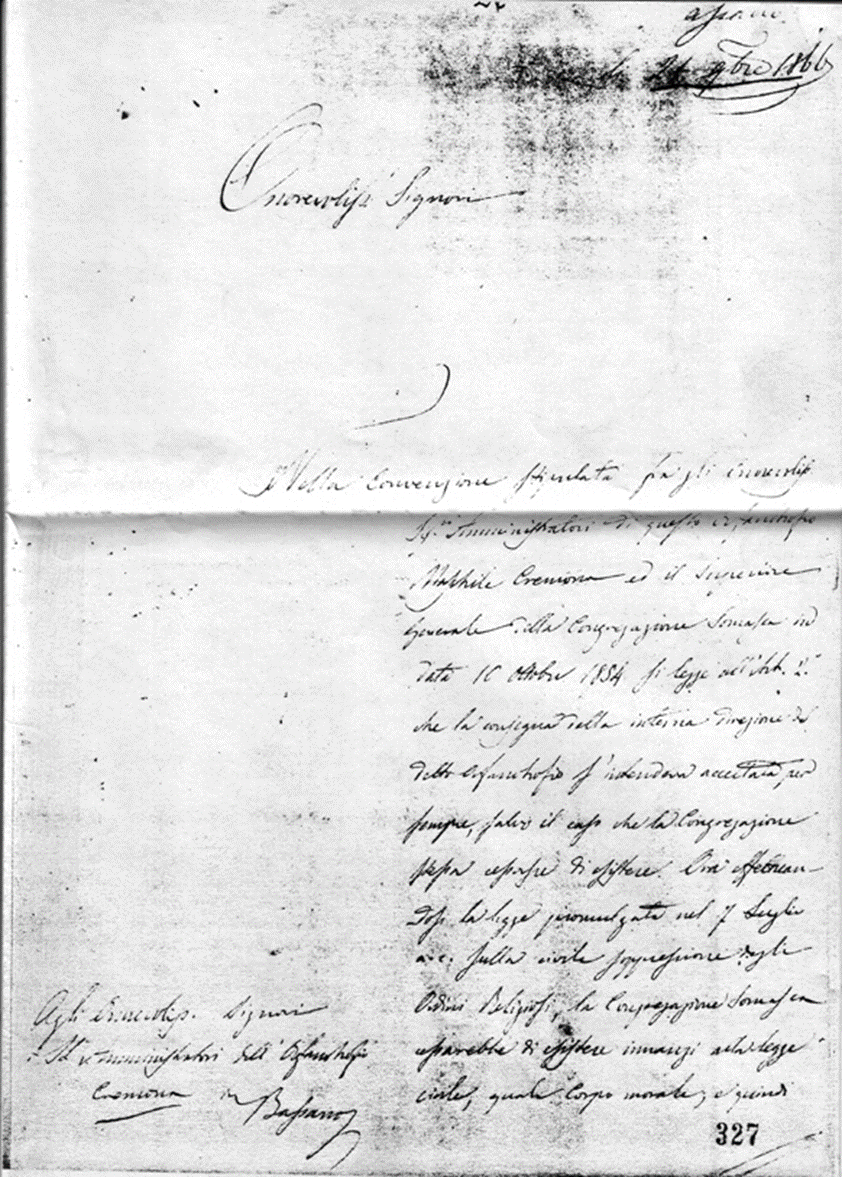 li 21 9bre 1866
Onorevoliss.i Signori
Nella Convenzione stipulata fra gli Onorevoliss.
Sig.ri Amministratori di questo Orfanotrofio
Maschile Cremona ed il Superiore
Generale della Congregazione Somasca in
data 10 Ottobre 1854. si legge all'Art. 2.
che la consegna della interna direzione di
detto Orfanotrofio s'intendeva accettata per
sempre, salvo il caso che la Congregazione
stessa cessasse di esistere. Ora effettuan-
dosi la legge promulgata nel 7 Luglio
a. c. sulla civile soppressione degli
Ordini Religiosi, la Congregazione Somasca
cesserebbe di esistere innanzi alla legge
civile, quale Corpo morale; e quindi
Agli Onorevoliss. Signori
Amministratori dell'Orfanotrofio
Cremona in
Bassano
327